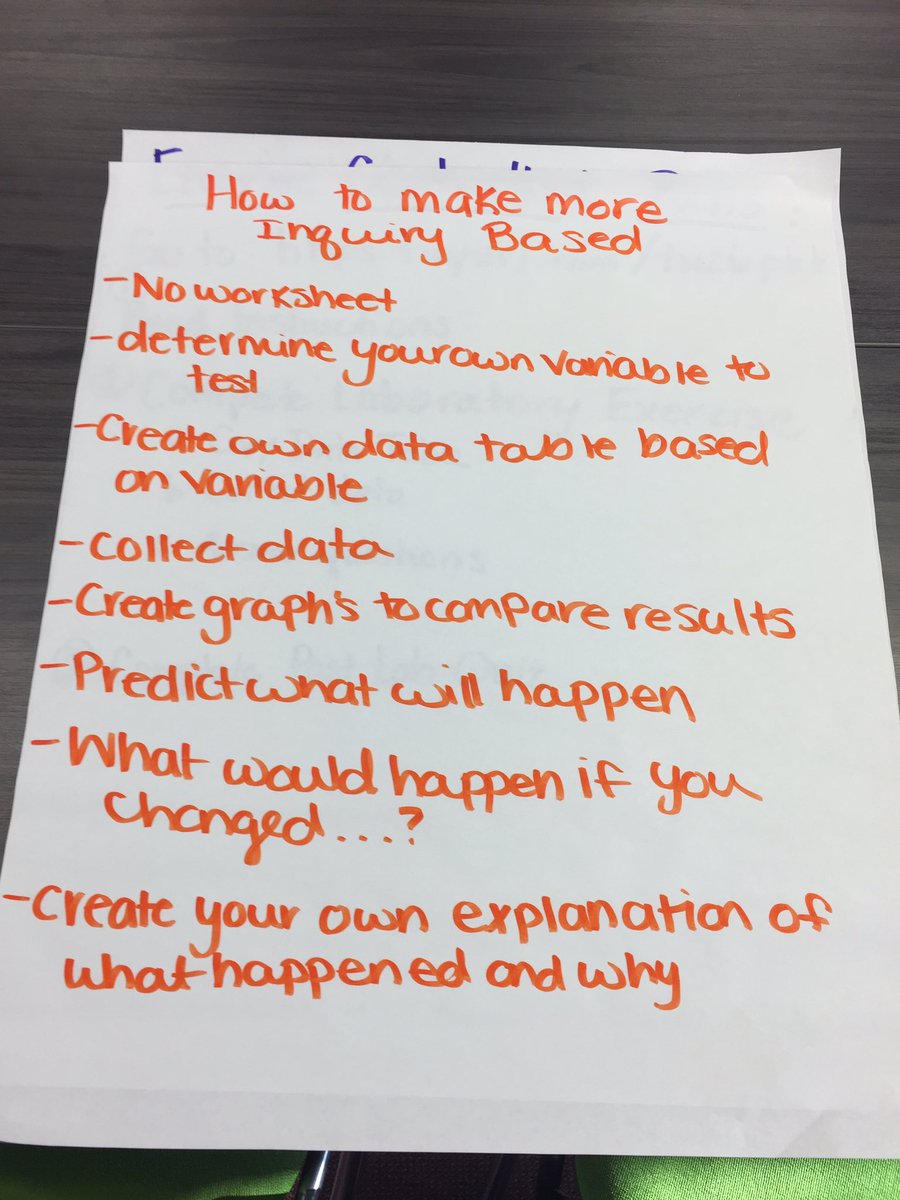 How to make more
Inquiry Based
- No worksheet
- determine your own variable to
test
- Create own data table based
on variable
- collect data
- Create graph's to compare results
- Predict what will happen
- What would happen if you
changed....?
- create your own explanation of
what happened and why